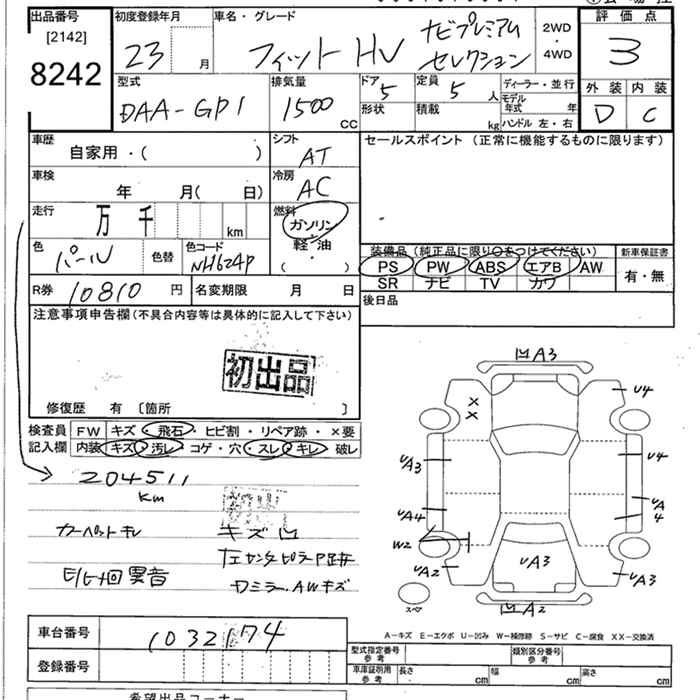 出品番号
[2142]
8242
初度登録年月
23 月
車名・グレード
フィット HV ナビプレミアム
セレクション
2WD
・
4WD
評価点
3
外装 内装
D C
型式
DAA-GP1
排気量
1500
CC
ドア
5
形状
定員
5 人
積載
kg
ディーラー・並行
モデル
年式 年
ハンドル 左・右
車歴
自家用・( )
シフト
AT
セールスポイント (正常に機能するものに限ります)
車検
年 月( 日)
冷房
AC
走行
万 千 km
燃料
ガソリン
軽・油
( ・ )
色
パール
色替
色コード
NH624P
装備品 (純正品に限り○をつけてください)
PS PW ABS エアB AW
SR ナビ TV カワ
新車保証書
有・無
R券 10810 円
名変期限 月 日
後日品
注意事項申告欄(不具合内容等は具体的に記入して下さい)
初出品
修復歴 有 〔箇所 〕
検査員
記入欄
FW キズ・飛石・ヒビ割・リペア跡・×要
内装 キズ・汚レ・コゲ・穴・スレ・キレ・破レ
204511
km
カーペットキレ
キズ凹
E/G回異音
ドミラー、AWキズ
凹A3
×
×
U4
UA3
U4
UA4
UA
4
W2
UA2
UA3
UA3
スペア
凹A2
車台番号 1032174
登録番号
A-キズ E-エクボ U-凹み W-補修跡 S-サビ C-腐食 XX-交換済
型式指定番号
参考
類別区分番号
参考
車庫証明用
参考
長さ cm
幅 cm
高さ cm
希望出品コーナー